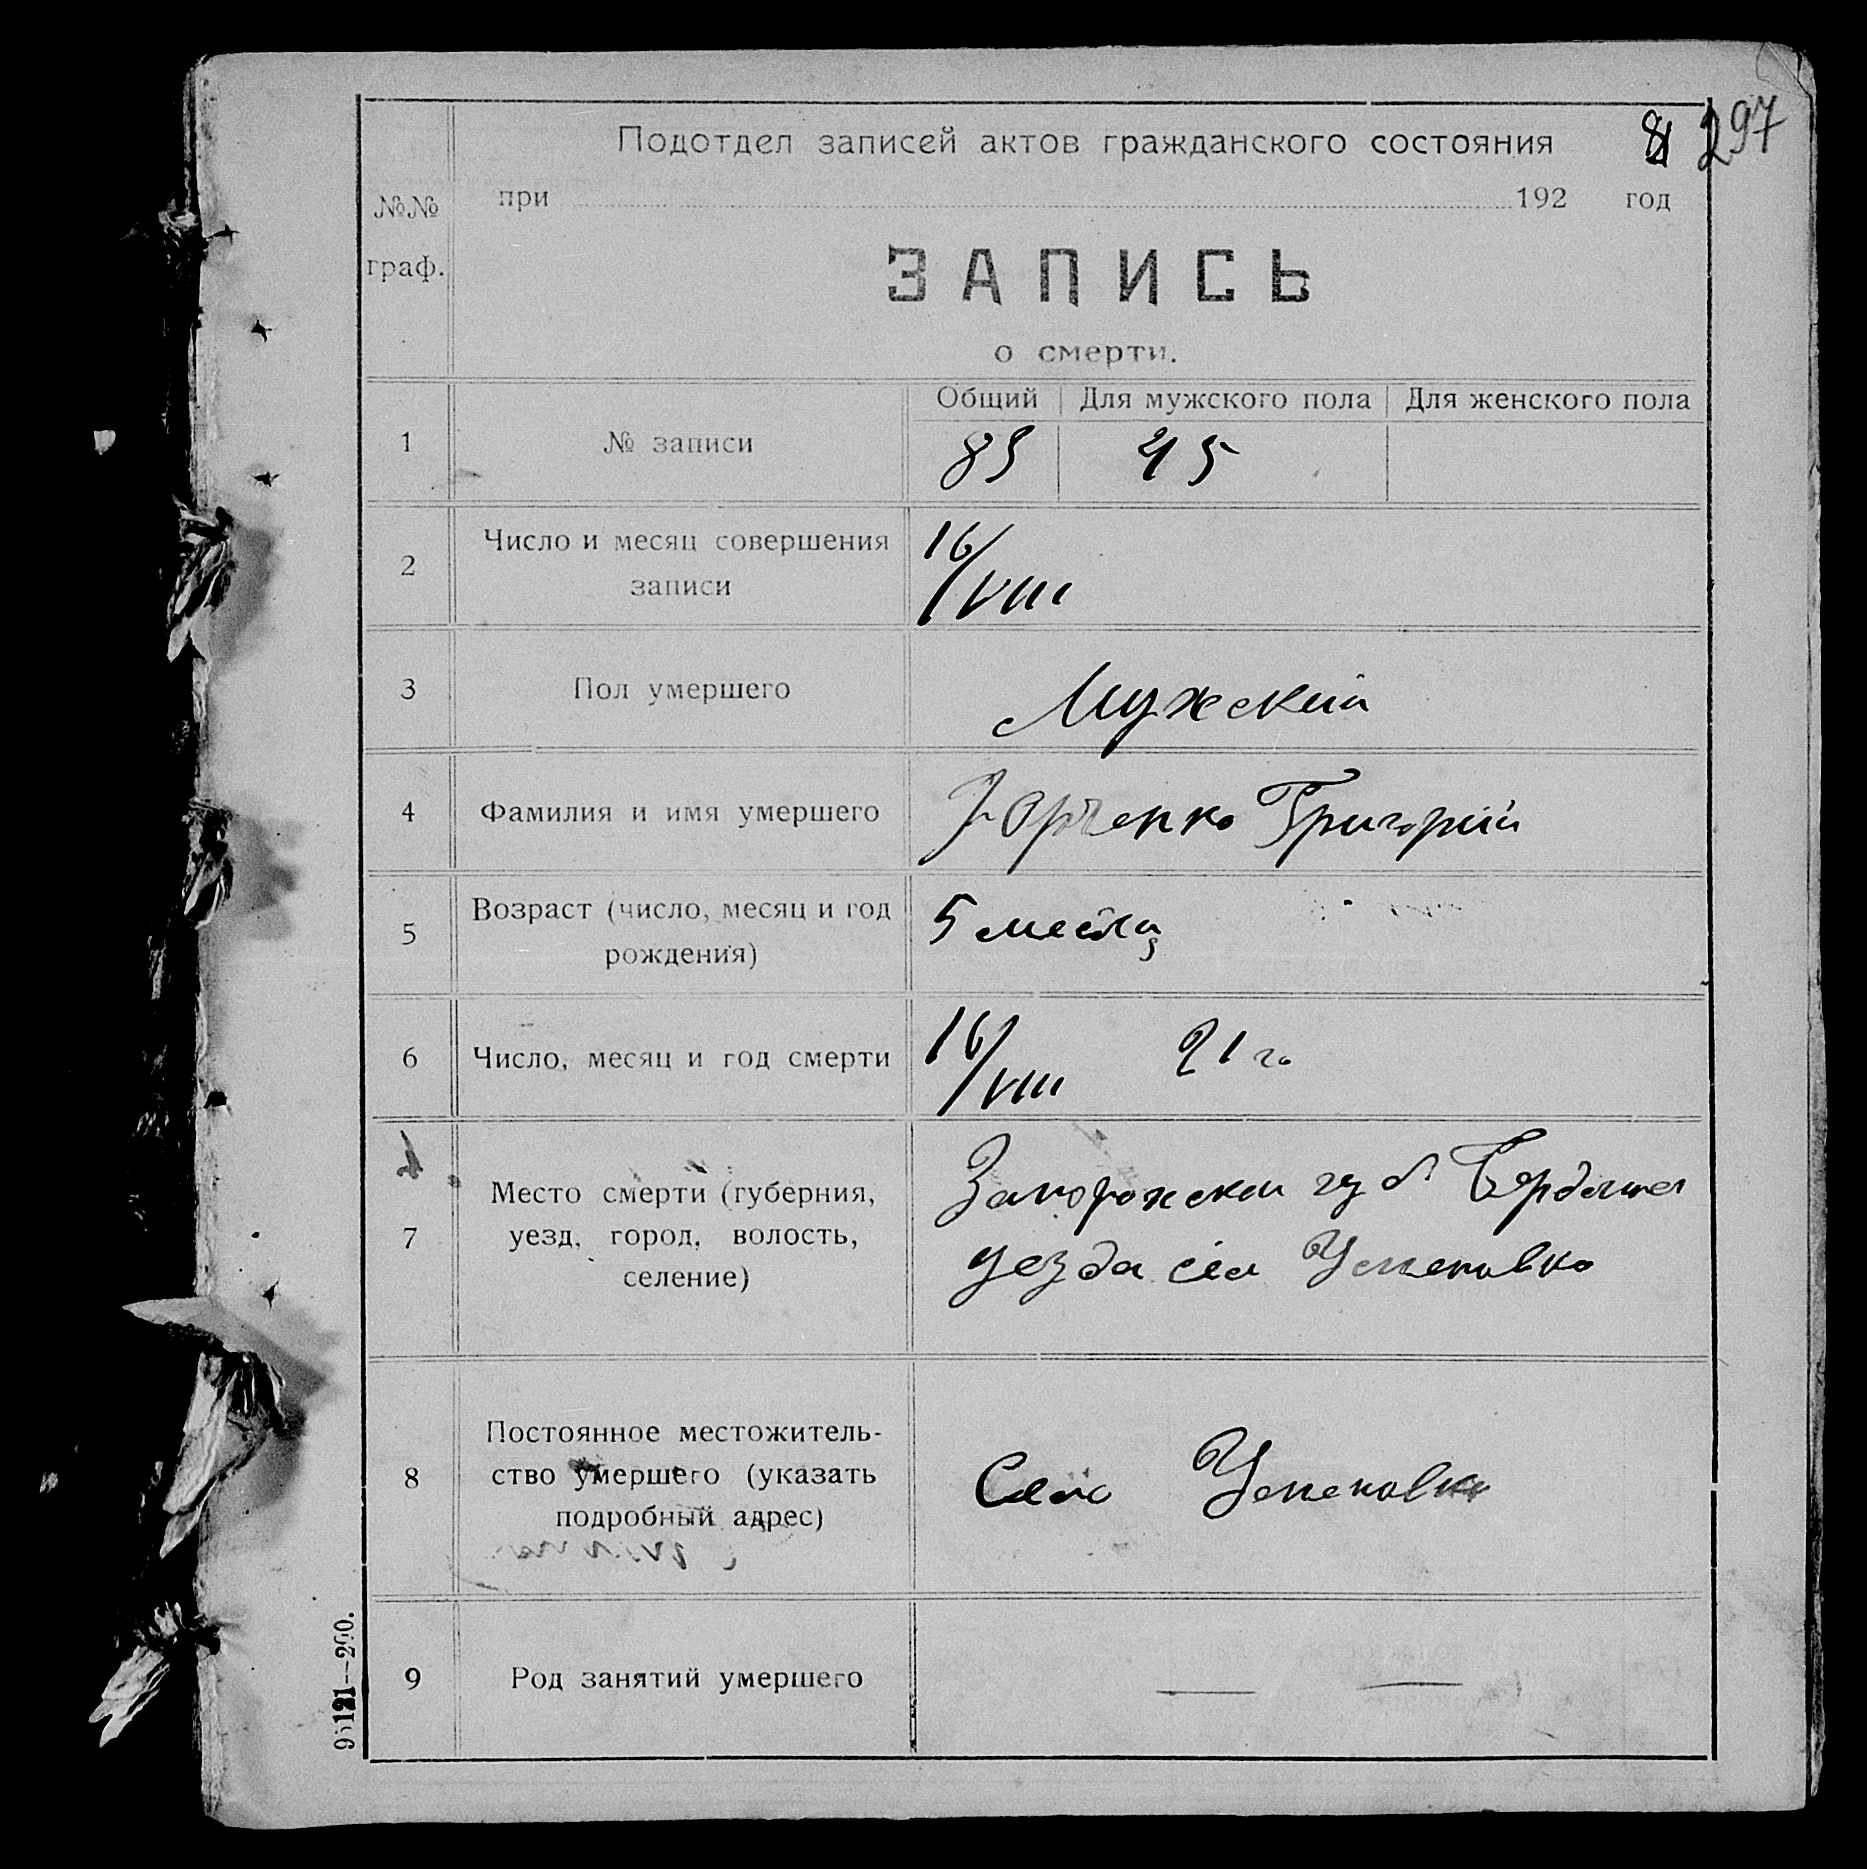 297
Подотдел записей актов гражданского состояния
№№ граф.
при 192 год
ЗАПИСЬ
о смерти.
Общий Для мужского пола Для женского пола
1 № записи 85 45
2 Число и месяц совершения 16/VIII
записи
3 Пол умершего Мужский
4 Фамилия и имя умершего Григорий
5 Возраст (число, месяц и год 5
рождения)
6 Число, месяц и год смерти 16/VIII 21 го
7 Место смерти (губерния, Запорожской губ
уезд, город, волость, уезда
селение)
Постоянное местожитель-
8 ство умершего (указать Село
подробный адрес)
9 Род занятий умершего — —